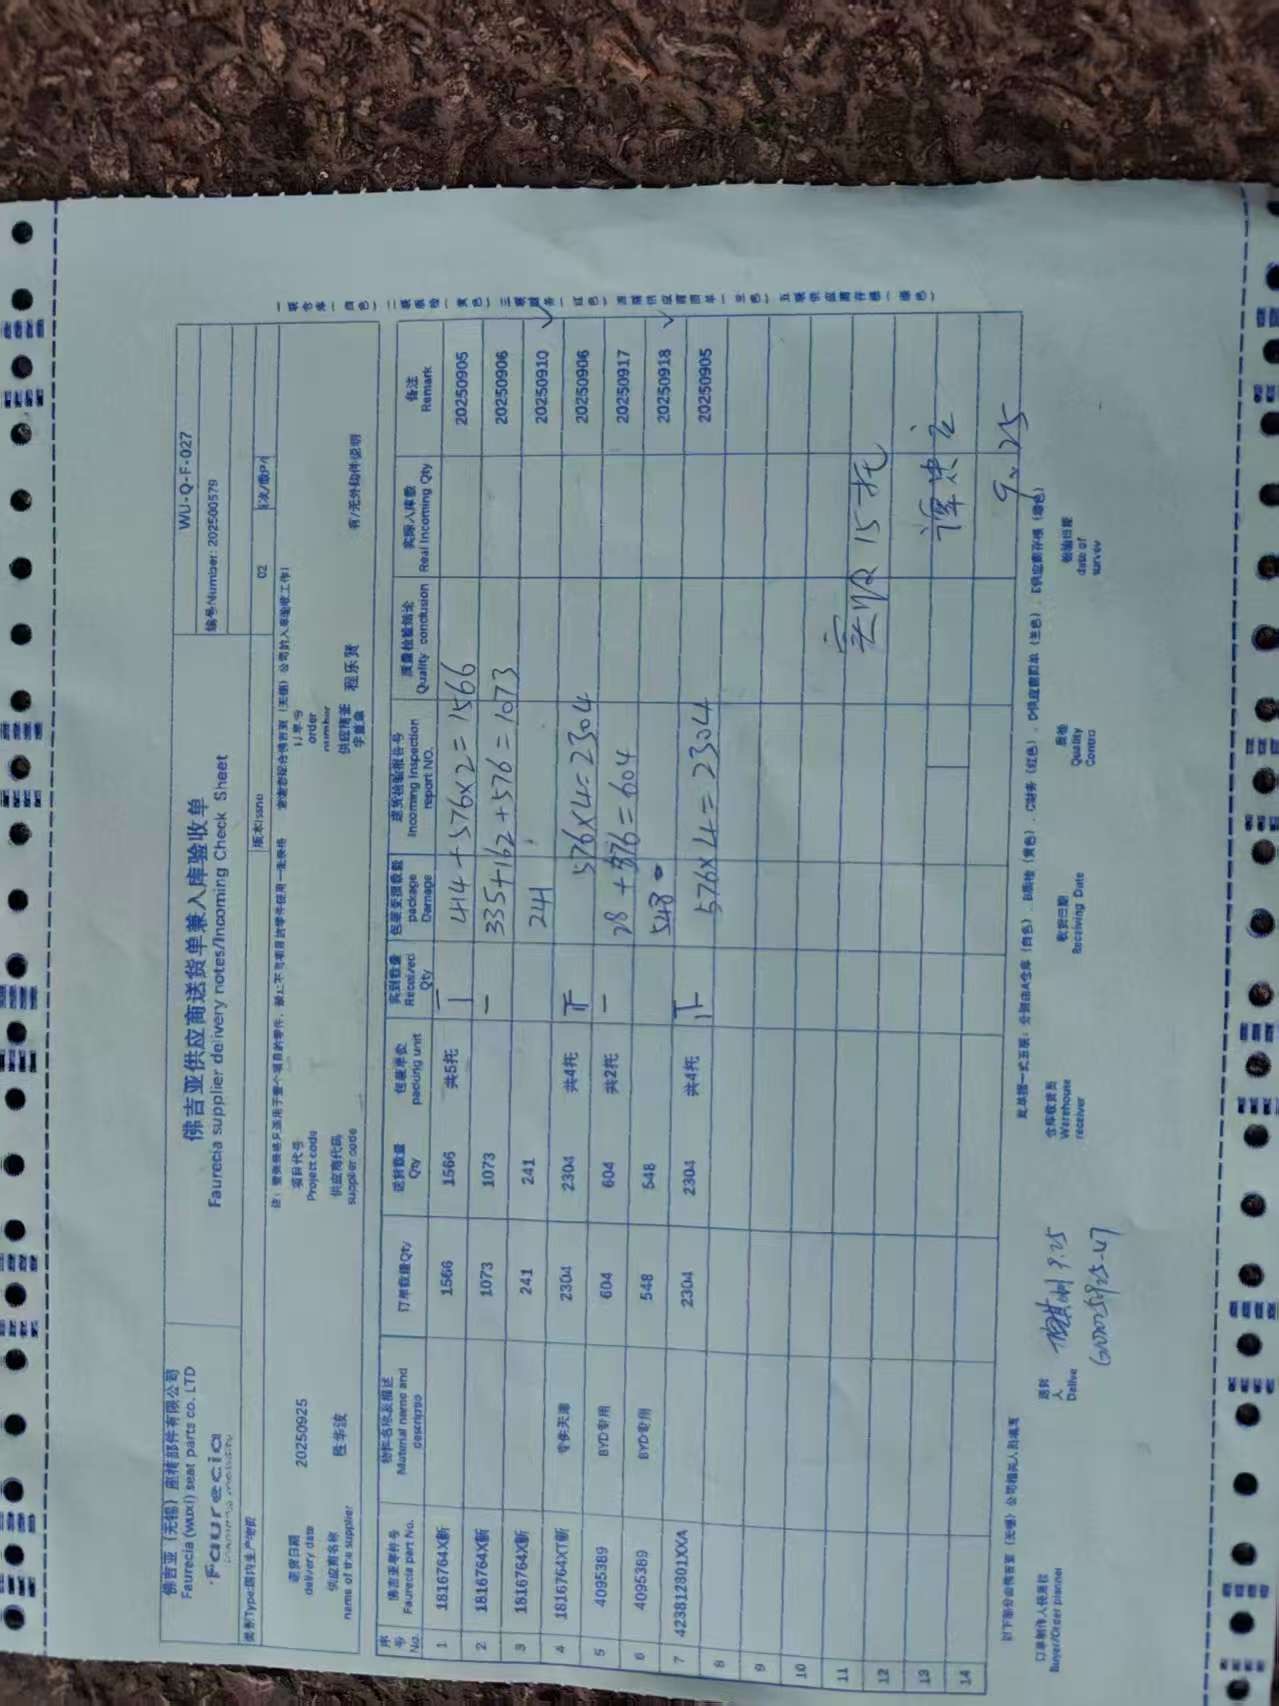 佛吉亚（无锡）座椅部件有限公司
Faurecia (wuxi) seat parts co. LTD
faurecia
佛吉亚供应商送货单兼入库验收单
Faurecia supplier delivery notes/Incoming Check Sheet
WU-Q-F-027
编号Number: 202500579
类别Type:国内生产物料
版本Issue 02
送货日期 20250925 项目代号 订单号
delivery date Project code order number
供应商名称 胜华波 供应商代码 程乐贤 有/无外购件说明
name of the supplier supplier code
序号 No. 佛吉亚零件号 Faurecia part No. 物料名称及描述 Material name and 订单数量Qty 送货数量 Qty 包装单位 packing unit 实到数量 Received Qty 包装受损数量 package Damage 进货检验报告号 Incoming Inspection report NO. 质量检验结论 Quality conclusion 实际入库数 Real Incoming Qty 备注 Remark
1 1816764X新 1566 1566 共5托 414+576×2=1566 20250905
2 1816764X新 1073 1073 335+162+576=1073 20250906
3 1816764X新 241 241 241 20250910
4 1816764XT新 专供天津 2304 2304 共4托 576×4=2304 20250906
5 4095389 BYD专用 604 604 共2托 28+576=604 20250917
6 4095389 BYD专用 548 548 548 20250918
7 423812801XXA 2304 2304 共4托 576×4=2304 20250905
8
9
10
11
12
13
14
实收15托
9.25
此单据一式五联：分别由A仓库（白色）、B质检（黄色）、C财务（红色）、D供应商回单（兰色）、E供应商存根（绿色）
订单制作人 Buyer/Order planner
送货人 Delive
9.25
仓库收货员 Warehouse receiver
收货日期 Receiving Date
质检 Quality Contro
检验日期 date of survey
一联仓库（白色）二联质检（黄色）三联财务（红色）四联供应商回单（兰色）五联供应商存根（绿色）